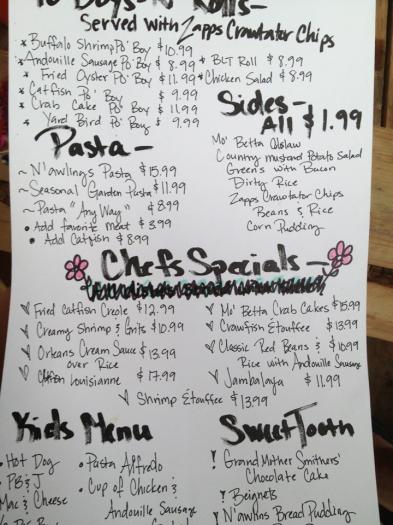 Po Boys & Rolls -
Served with Zapps Crawtator Chips
* Buffalo Shrimp Po' Boy $10.99
* Andouille Sausage Po' Boy $8.99
* Fried Oyster Po' Boy $11.99
* Catfish Po' Boy $9.99
* Crab Cake Po' Boy $11.99
* Yard Bird Po' Boy $9.99
* BLT Roll $8.99
* Chicken Salad $8.99
Sides -
All $1.99
Mo' Betta Coleslaw
Country mustard Potato Salad
Greens with Bacon
Dirty Rice
Zapps Crawtator Chips
Beans & Rice
Corn Pudding
Pasta -
~ N'awlings Pasta $15.99
~ Seasonal Garden Pasta $11.99
~ Pasta "Any Way" $8.99
• Add favorite meat $3.99
• Add Catfish $8.99
Chefs Specials -
Fried Catfish Creole $12.99
Creamy Shrimp & Grits $10.99
Orleans Cream Sauce $13.99
over Rice
Louisianne $17.99
Mo' Betta Crab Cakes $15.99
Crawfish Etouffee $13.99
Classic Red Beans & $10.99
Rice with Andouille Sausage
Jambalaya $11.99
Shrimp Etouffee $13.99
Kids Menu
• Hot Dog
• PB & J
Mac & Cheese
• Pasta Alfredo
• Cup of Chicken &
Andouille Sausage
Sweet Tooth
! Grand Mother Smithers'
Chocolate Cake
! Beignets
! N'awlins Bread Pudding